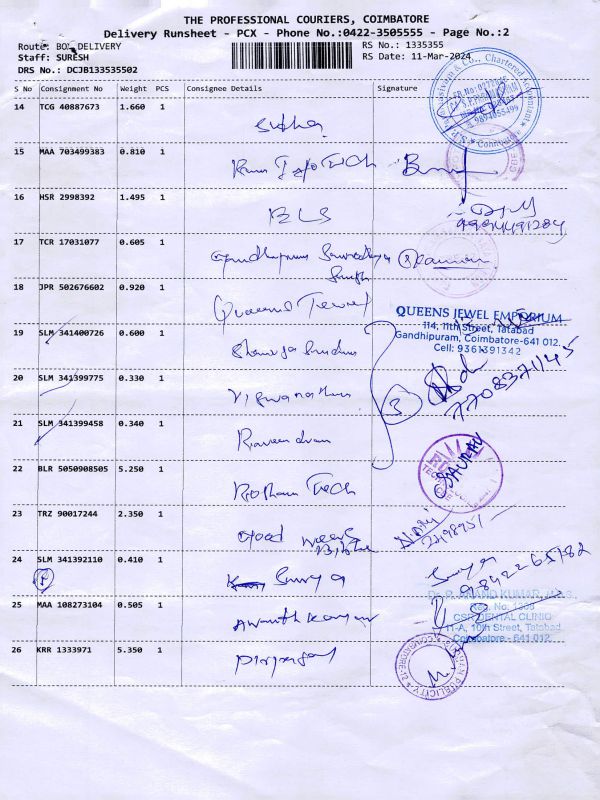 THE PROFESSIONAL COURIERS, COIMBATORE
Delivery Runsheet - PCX - Phone No.:0422-3505555 - Page No.:2
Route: BOX DELIVERY
RS No.: 1335355
Staff: SURESH
RS Date: 11-Mar-2024
DRS No.: DCJB133535502
S No Consignment No Weight PCS Consignee Details Signature
14 TCG 40887673 1.660 1
Sudha
15 MAA 703499383 0.810 1
16 HSR 2998392 1.495 1
BLS
17 TCR 17031077 0.605 1
18 JPR 502676602 0.920 1
Queens Jewel
QUEENS JEWEL EMPORIUM
114, 11th Street, Tatabad
Gandhipuram, Coimbatore-641 012.
Cell: 9361391342
19 SLM 341400726 0.600 1
7708371145
20 SLM 341399775 0.330 1
Viswanathan
3
21 SLM 341399458 0.340 1
Raveendran
22 BLR 5050908505 5.250 1
Roshan Tech
23 TRZ 90017244 2.350 1
Good
24 SLM 341392110 0.410 1
P
Surya
Surya
9842265182
25 MAA 108273104 0.505 1
Ananth Kumar
Dr. P. ANAND KUMAR,
Reg. No:
CSR DENTAL CLINIC
11-A, 10th Street, Tatabad,
Coimbatore - 641 012.
26 KRR 1333971 5.350 1